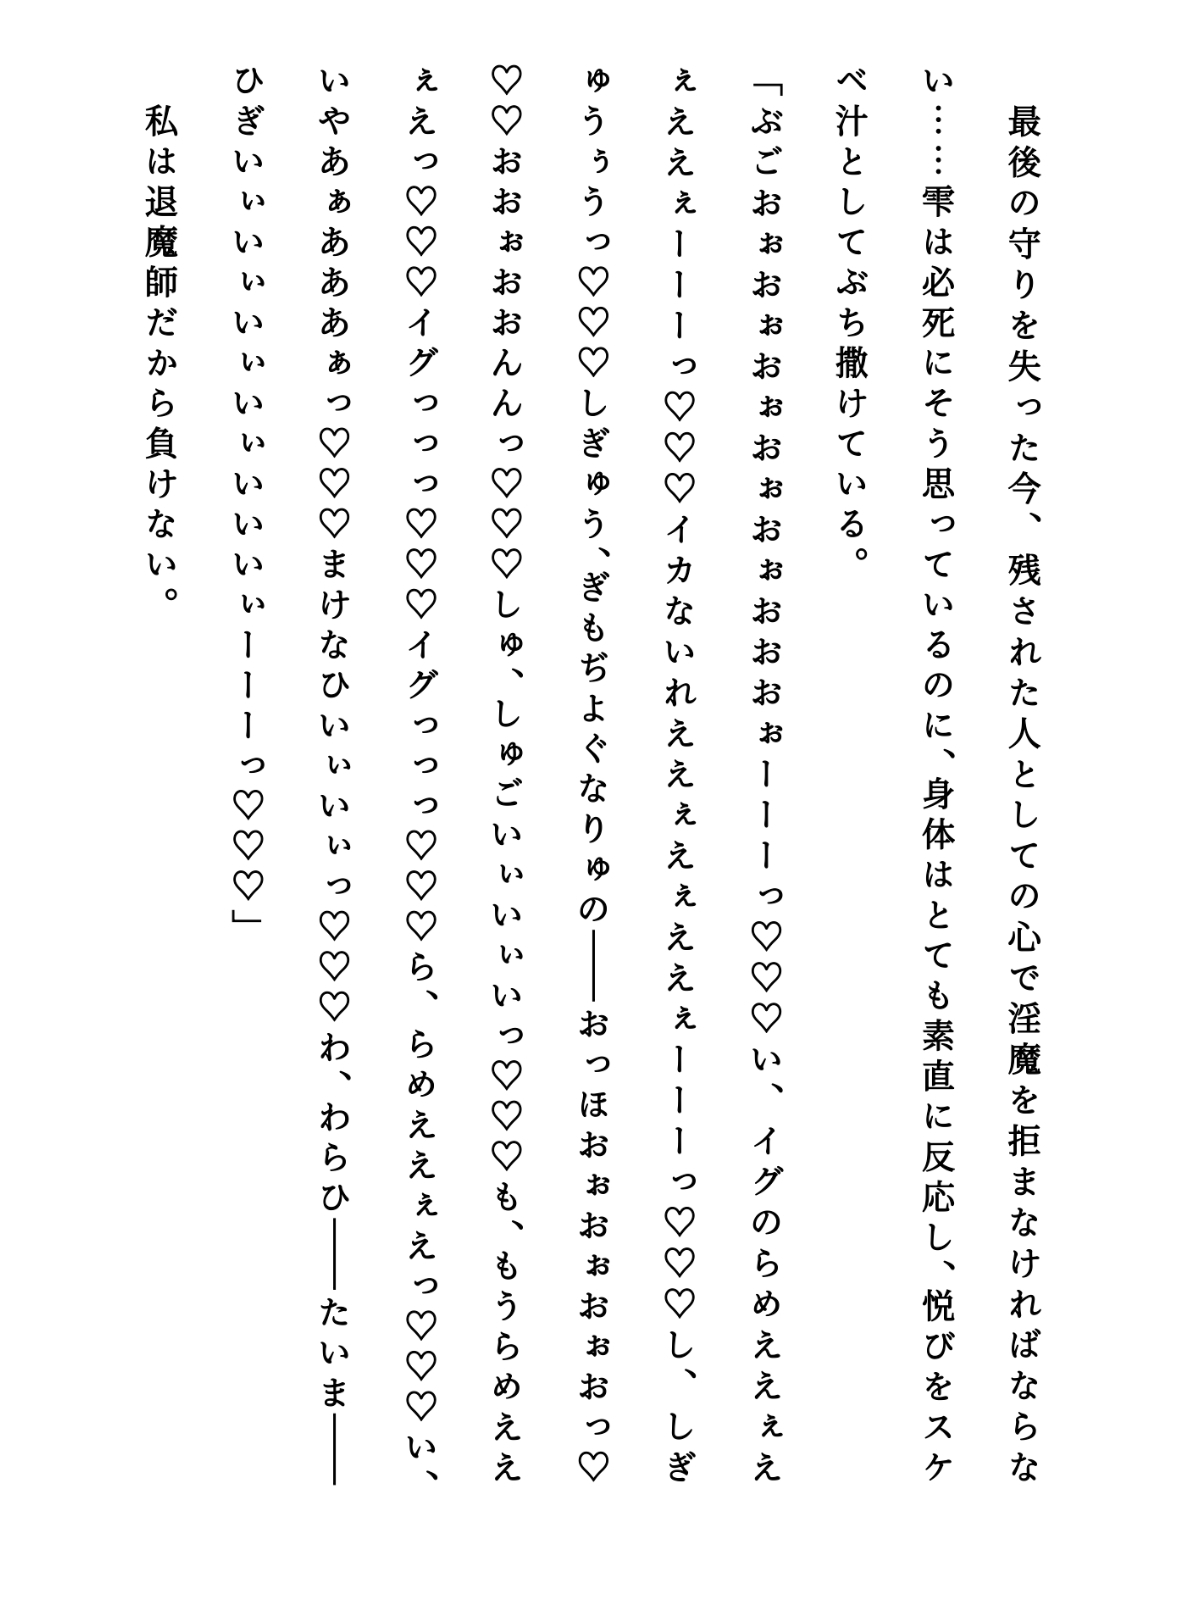 最後の守りを失った今、残された人としての心で淫魔を拒まなければならな
い……雫は必死にそう思っているのに、身体はとても素直に反応し、悦びをスケ
ベ汁としてぶち撒けている。
「ぶごおぉおぉおぉおぉおぉおおおぉーーーっ♡♡♡い、イグのらめええぇえ
ぇええぇーーーっ♡♡♡イカないれええぇえぇええぇーーーっ♡♡♡し、しぎ
ゅうぅうっ♡♡♡しぎゅう、ぎもぢよぐなりゅの――おっほおぉおぉおぉおっ♡
♡♡おおぉおおんんっ♡♡♡しゅ、しゅごいぃいぃいっ♡♡♡も、もうらめええ
ぇえっ♡♡♡イグっっっ♡♡♡イグっっっ♡♡♡ら、らめええぇえっ♡♡♡い、
いやあぁあああぁっ♡♡♡まけなひいぃいぃっ♡♡♡わ、わらひ――たいま――
ひぎいぃいぃいぃいぃいいいぃーーーっ♡♡♡」
私は退魔師だから負けない。